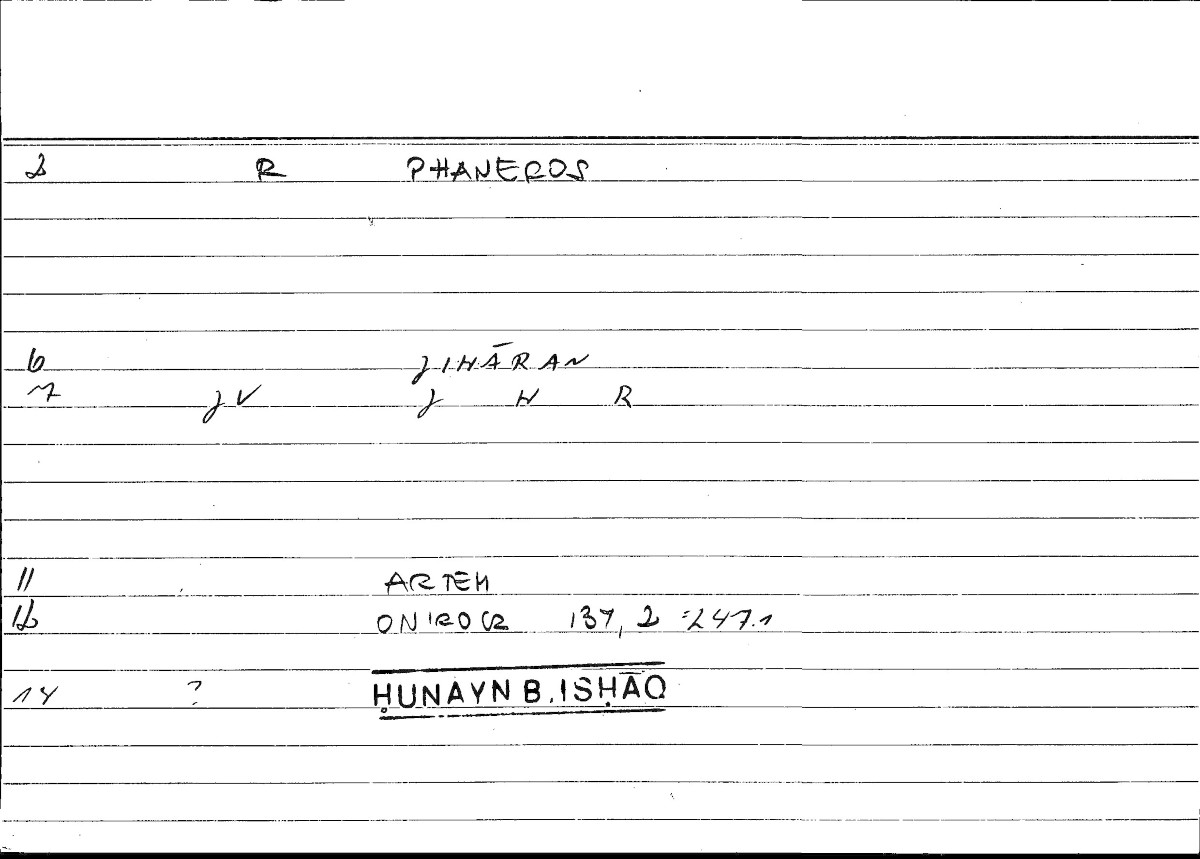 2 R PHANEROS
6 JIHĀRAN
7 JV J H R
11 ARTEM
12 ONIROCR 137, 2 =247.1
14 ? ḤUNAYN B. ISḤĀQ